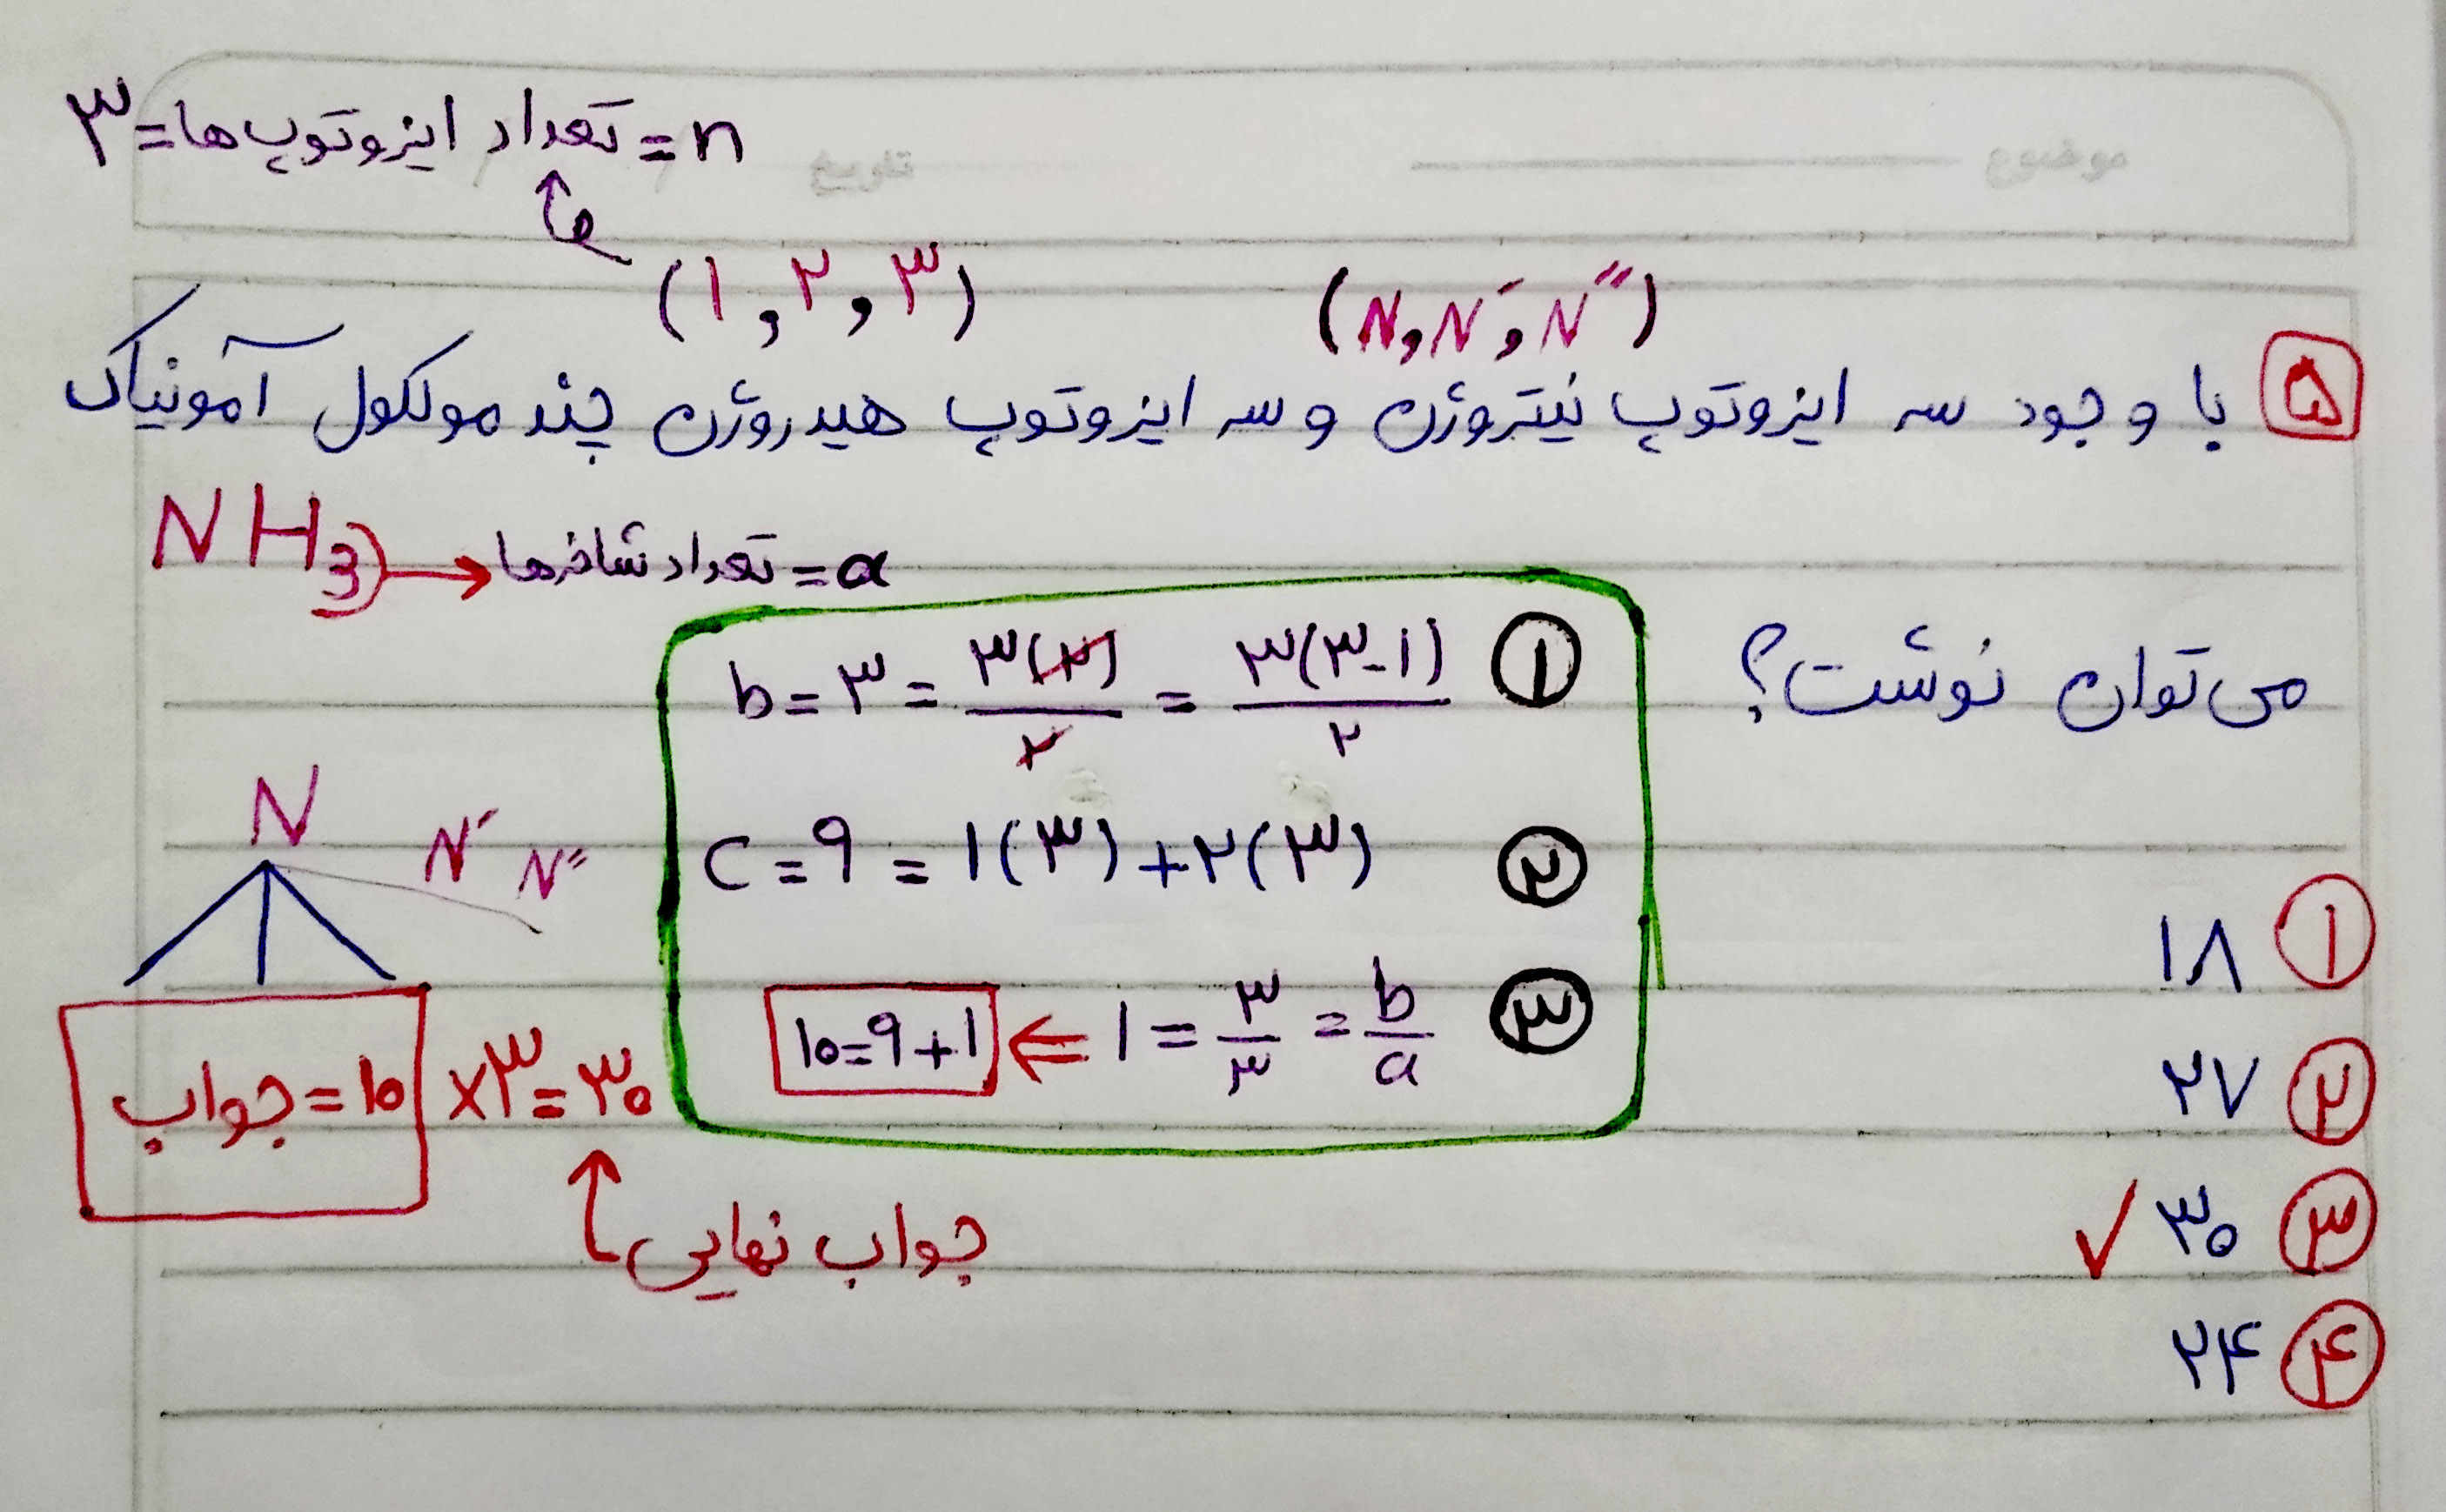 n = تعداد ایزوتوپ ها = ۳
موضوع
تاریخ
(N , N′ , N″)
(۱ , ۲ , ۳)
۵ با وجود سه ایزوتوپ نیتروژن و سه ایزوتوپ هیدروژن چند مولکول آمونیاک
NH3 → تعداد شاخه‌ها = a
می توان نوشت؟
① b = ۳ = ۳(۲)/۲ = ۳(۳-۱)/۲
② c = ۹ = ۱(۳) + ۲(۳)
③ ۱۰=۹+۱ ⇐ ۱ = ۳/۳ = b/a
N N′ N″
جواب = ۱۰ ×۳ = ۳۰
جواب نهایی
① ۱۸
② ۲۷
③ ۳۰ ✓
④ ۲۴